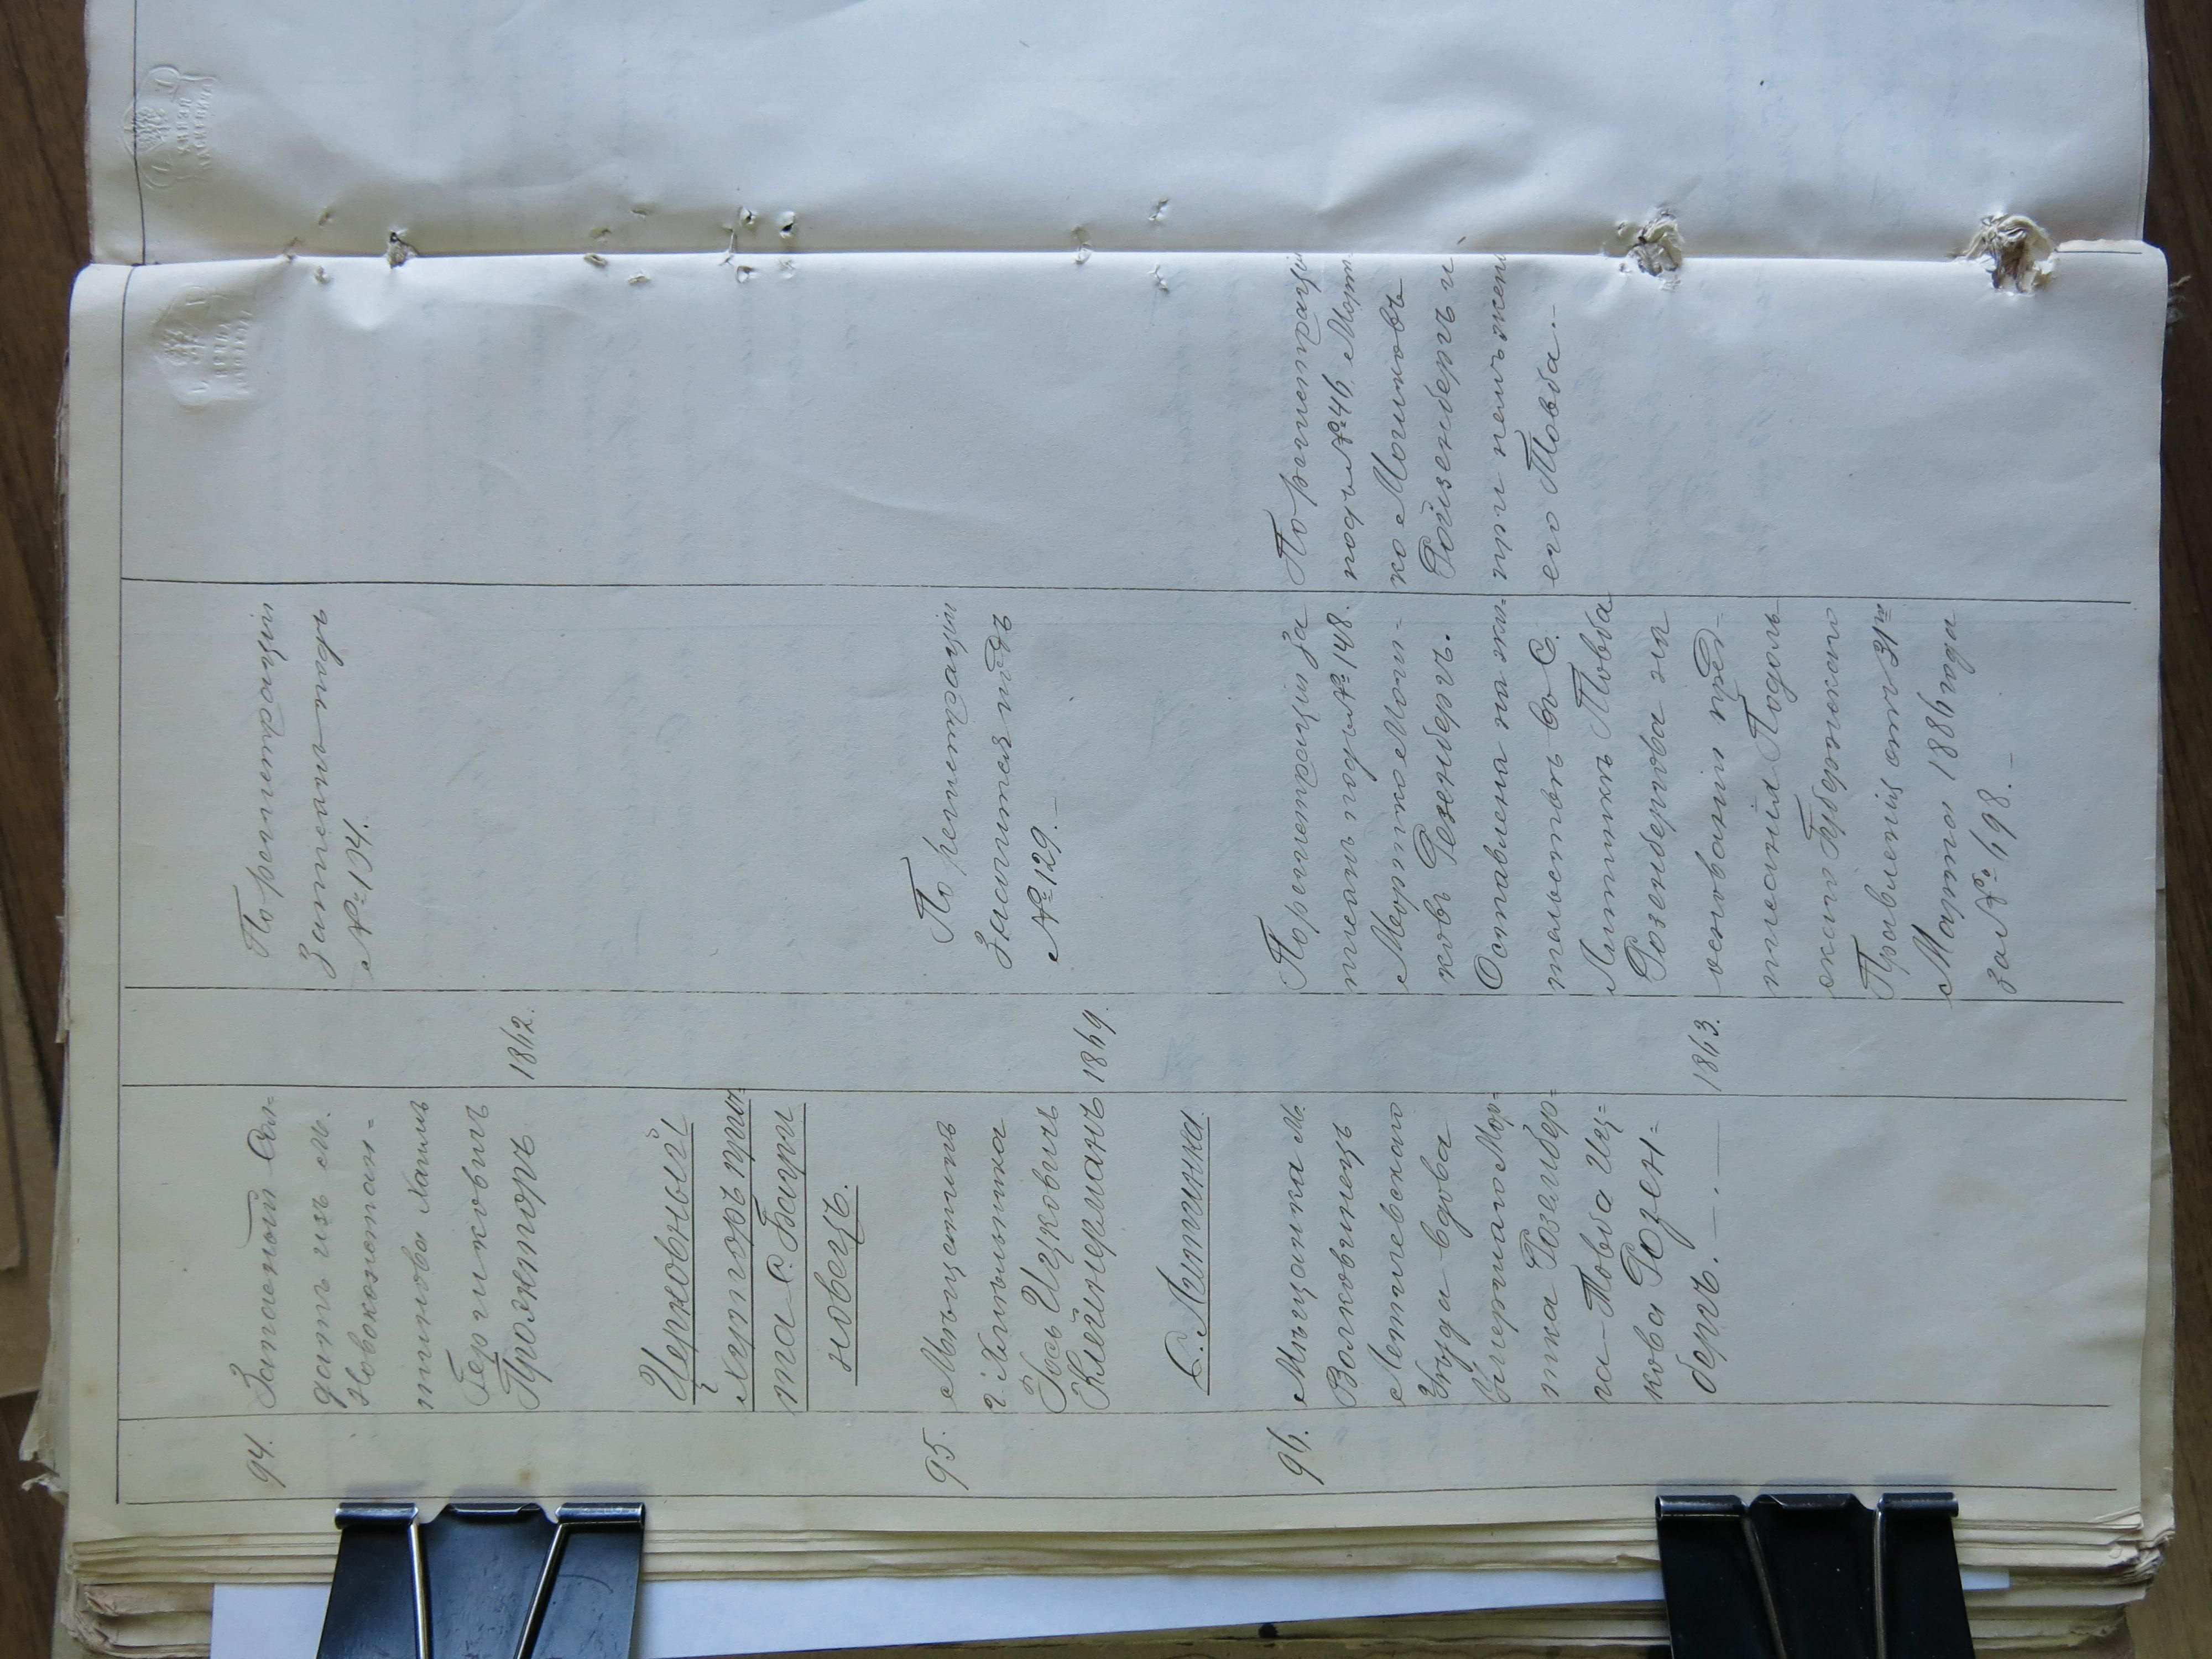 94.
Запасный Сол-
датъ изъ м.
Новоконстан-
тинова Хаимъ
Гершковичъ
Прозянторъ
1862.
По регистраціи
Записанъ подъ
№ 194.
Церковный
хуторъ при=
та С. Багри
новецъ.
95.
Мѣщанинъ
г. Хмѣльника
Іось Ицковичъ
Клейнерманъ
1869.
По регистраціи
Значится подъ
№ 129.—
С. Литинка.
96.
Мѣщанка м.
Волковинецъ
Летичевскаго
Уѣзда вдова
Умершаго Мор=
тка Розенбер=
га—Повба Иц=
кова Розен=
бергъ.
1863.
По регистраціи за
писанъ подъ № 148.
Мортко Мош=
ковъ Резенбергъ.
Оставлена на жи=
тельствѣ въ С.
Литинкѣ Повба
Розенбергова на
основаніи пред=
писанія Подоль
скаго Губернскаго
Правленія отъ 31го
Марта 1886 года
за № 698.—
По регистраціи
подъ № 46. Морт
ко Мошковъ
Ройзенбергъ и
при немъ жена
его Повба.—